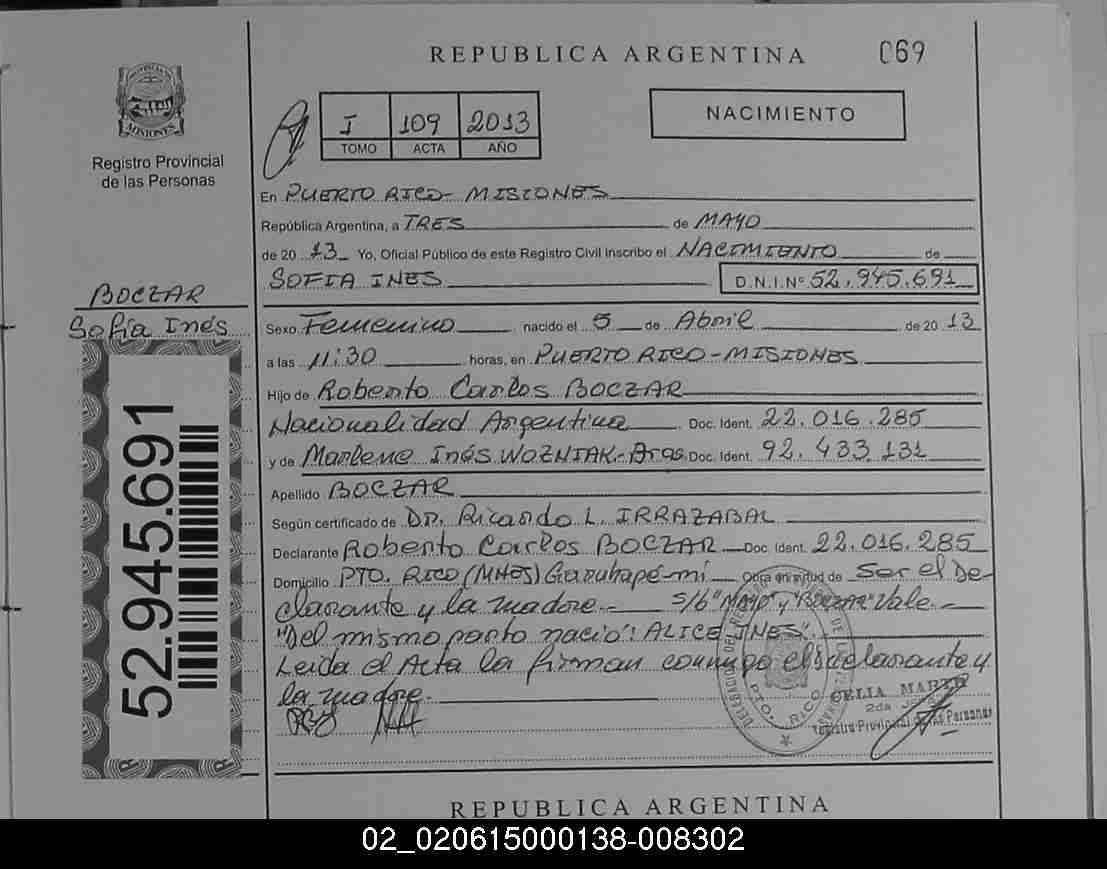 REPUBLICA ARGENTINA
069
PROVINCIA DE
MISIONES
Registro Provincial
de las Personas
I 109 2013
TOMO ACTA AÑO
NACIMIENTO
En PUERTO RICO - MISIONES
República Argentina, a TRES de MAYO
de 20 13 Yo, Oficial Público de este Registro Civil inscribo el NACIMIENTO de
SOFIA INES D.N.I.Nº 52.945.691
BOCZAR
Sofía Inés
Sexo Femenino nacido el 5 de Abril de 20 13
a las 11:30 horas, en PUERTO RICO - MISIONES
Hijo de Roberto Carlos BOCZAR
Nacionalidad Argentina Doc. Ident. 22.016.285
y de Marlene Inés WOZNIAK - Bras Doc. Ident. 92.433.131
Apellido BOCZAR
Según certificado de Dr. Ricardo L. IRRAZABAL
Declarante Roberto Carlos BOCZAR Doc. Ident. 22.016.285
Domicilio PTO. RICO (MNES) Garuhapé-mí Obra en virtud de Ser el De-
clarante y la madre.- S/b "MAYO" y "BOCZAR" Vale.-
"Del mismo parto nació": ALICE INES".
Leída el Acta la firman conmigo el declarante y
la madre.
DELEGACION DEL REG
PTO. RICO
CELIA MARTA
2da
Registro Provincial de las Personas
52.945.691
REPUBLICA ARGENTINA
02_020615000138-008302